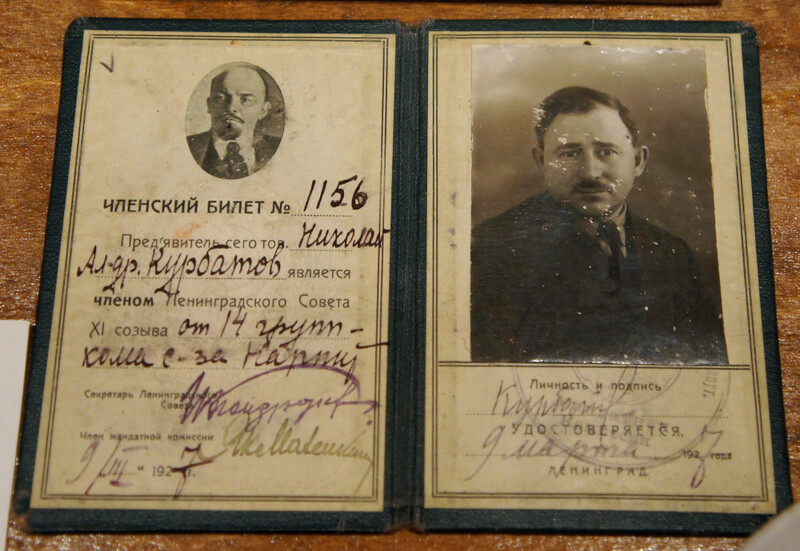 ЧЛЕНСКИЙ БИЛЕТ № 1156
Пред'явитель сего тов. Николай
Ал-др. Курбатов является
членом Ленинградского Совета
XI созыва от 14 групп-
кома с-за Нарпит
Секретарь Ленинградского
Совета
Член мандатной комиссии
9/III " 1927 г.
Личность и подпись
УДОСТОВЕРЯЕТСЯ.
9 марта 1927 года
ЛЕНИНГРАД.